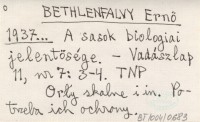 BETHLENFALVY Ernö
1937... A sasok biologiai
jelentősége. - Vadászlap
11, nr 7: 3-4. TNP
Orły skalne i in. Po-
trzeba ich ochrony.
BT/004/0683